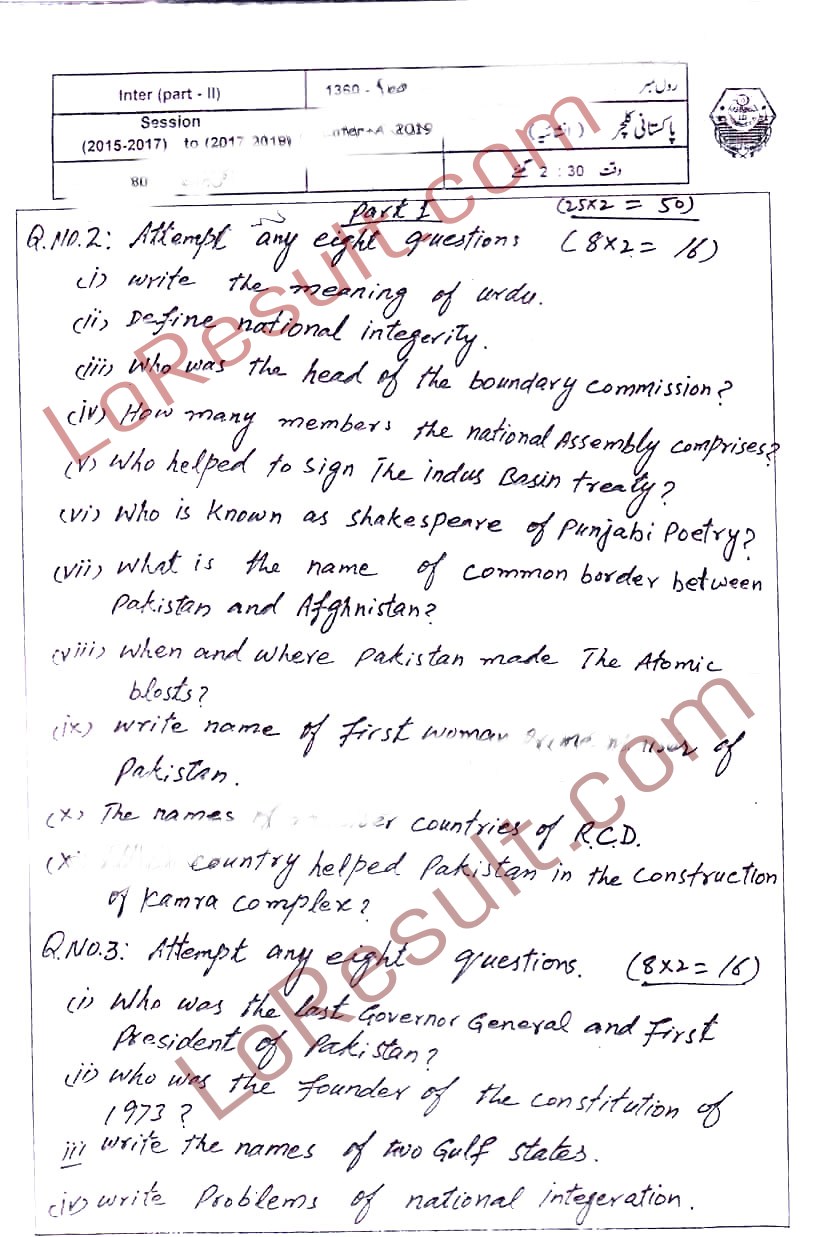 Inter (part - II)
1360 -
رول نمبر
Session
(2015-2017) to (2017-2019)
2019
پاکستانی کلچر (انشائیہ)
80
وقت 2 : 30 گھنٹے
Part I (25x2 = 50)
Q.NO.2: Attempt any eight questions (8x2= 16)
(i) write the meaning of urdu.
(ii) Define national integerity.
(iii) Who was the head of the boundary commission?
(iv) How many members the national Assembly comprises?
(v) Who helped to sign The indus Basin treaty?
(vi) Who is known as shakespeare of Punjabi Poetry?
(vii) What is the name of common border between
Pakistan and Afghnistan?
(viii) When and where Pakistan made The Atomic
blosts?
(ix) write name of first woman of
Pakistan.
(x) The names countries of R.C.D.
(x country helped Pakistan in the construction
of Kamra Complex?
Q.NO.3: Attempt any eight questions. (8x2=16)
(i) Who was the last Governor General and First
President of Pakistan?
(ii) Who was the founder of the constitution of
1973?
iii write the names of two Gulf states.
(iv) write Problems of national integeration.
LoResult.com
LoResult.com